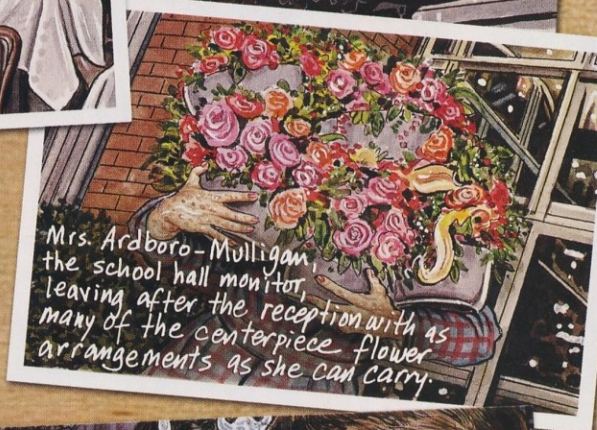 Mrs. Ardboro-Mulligan,
the school hall monitor,
leaving after the reception with as
many of the centerpiece flower
arrangements as she can carry.